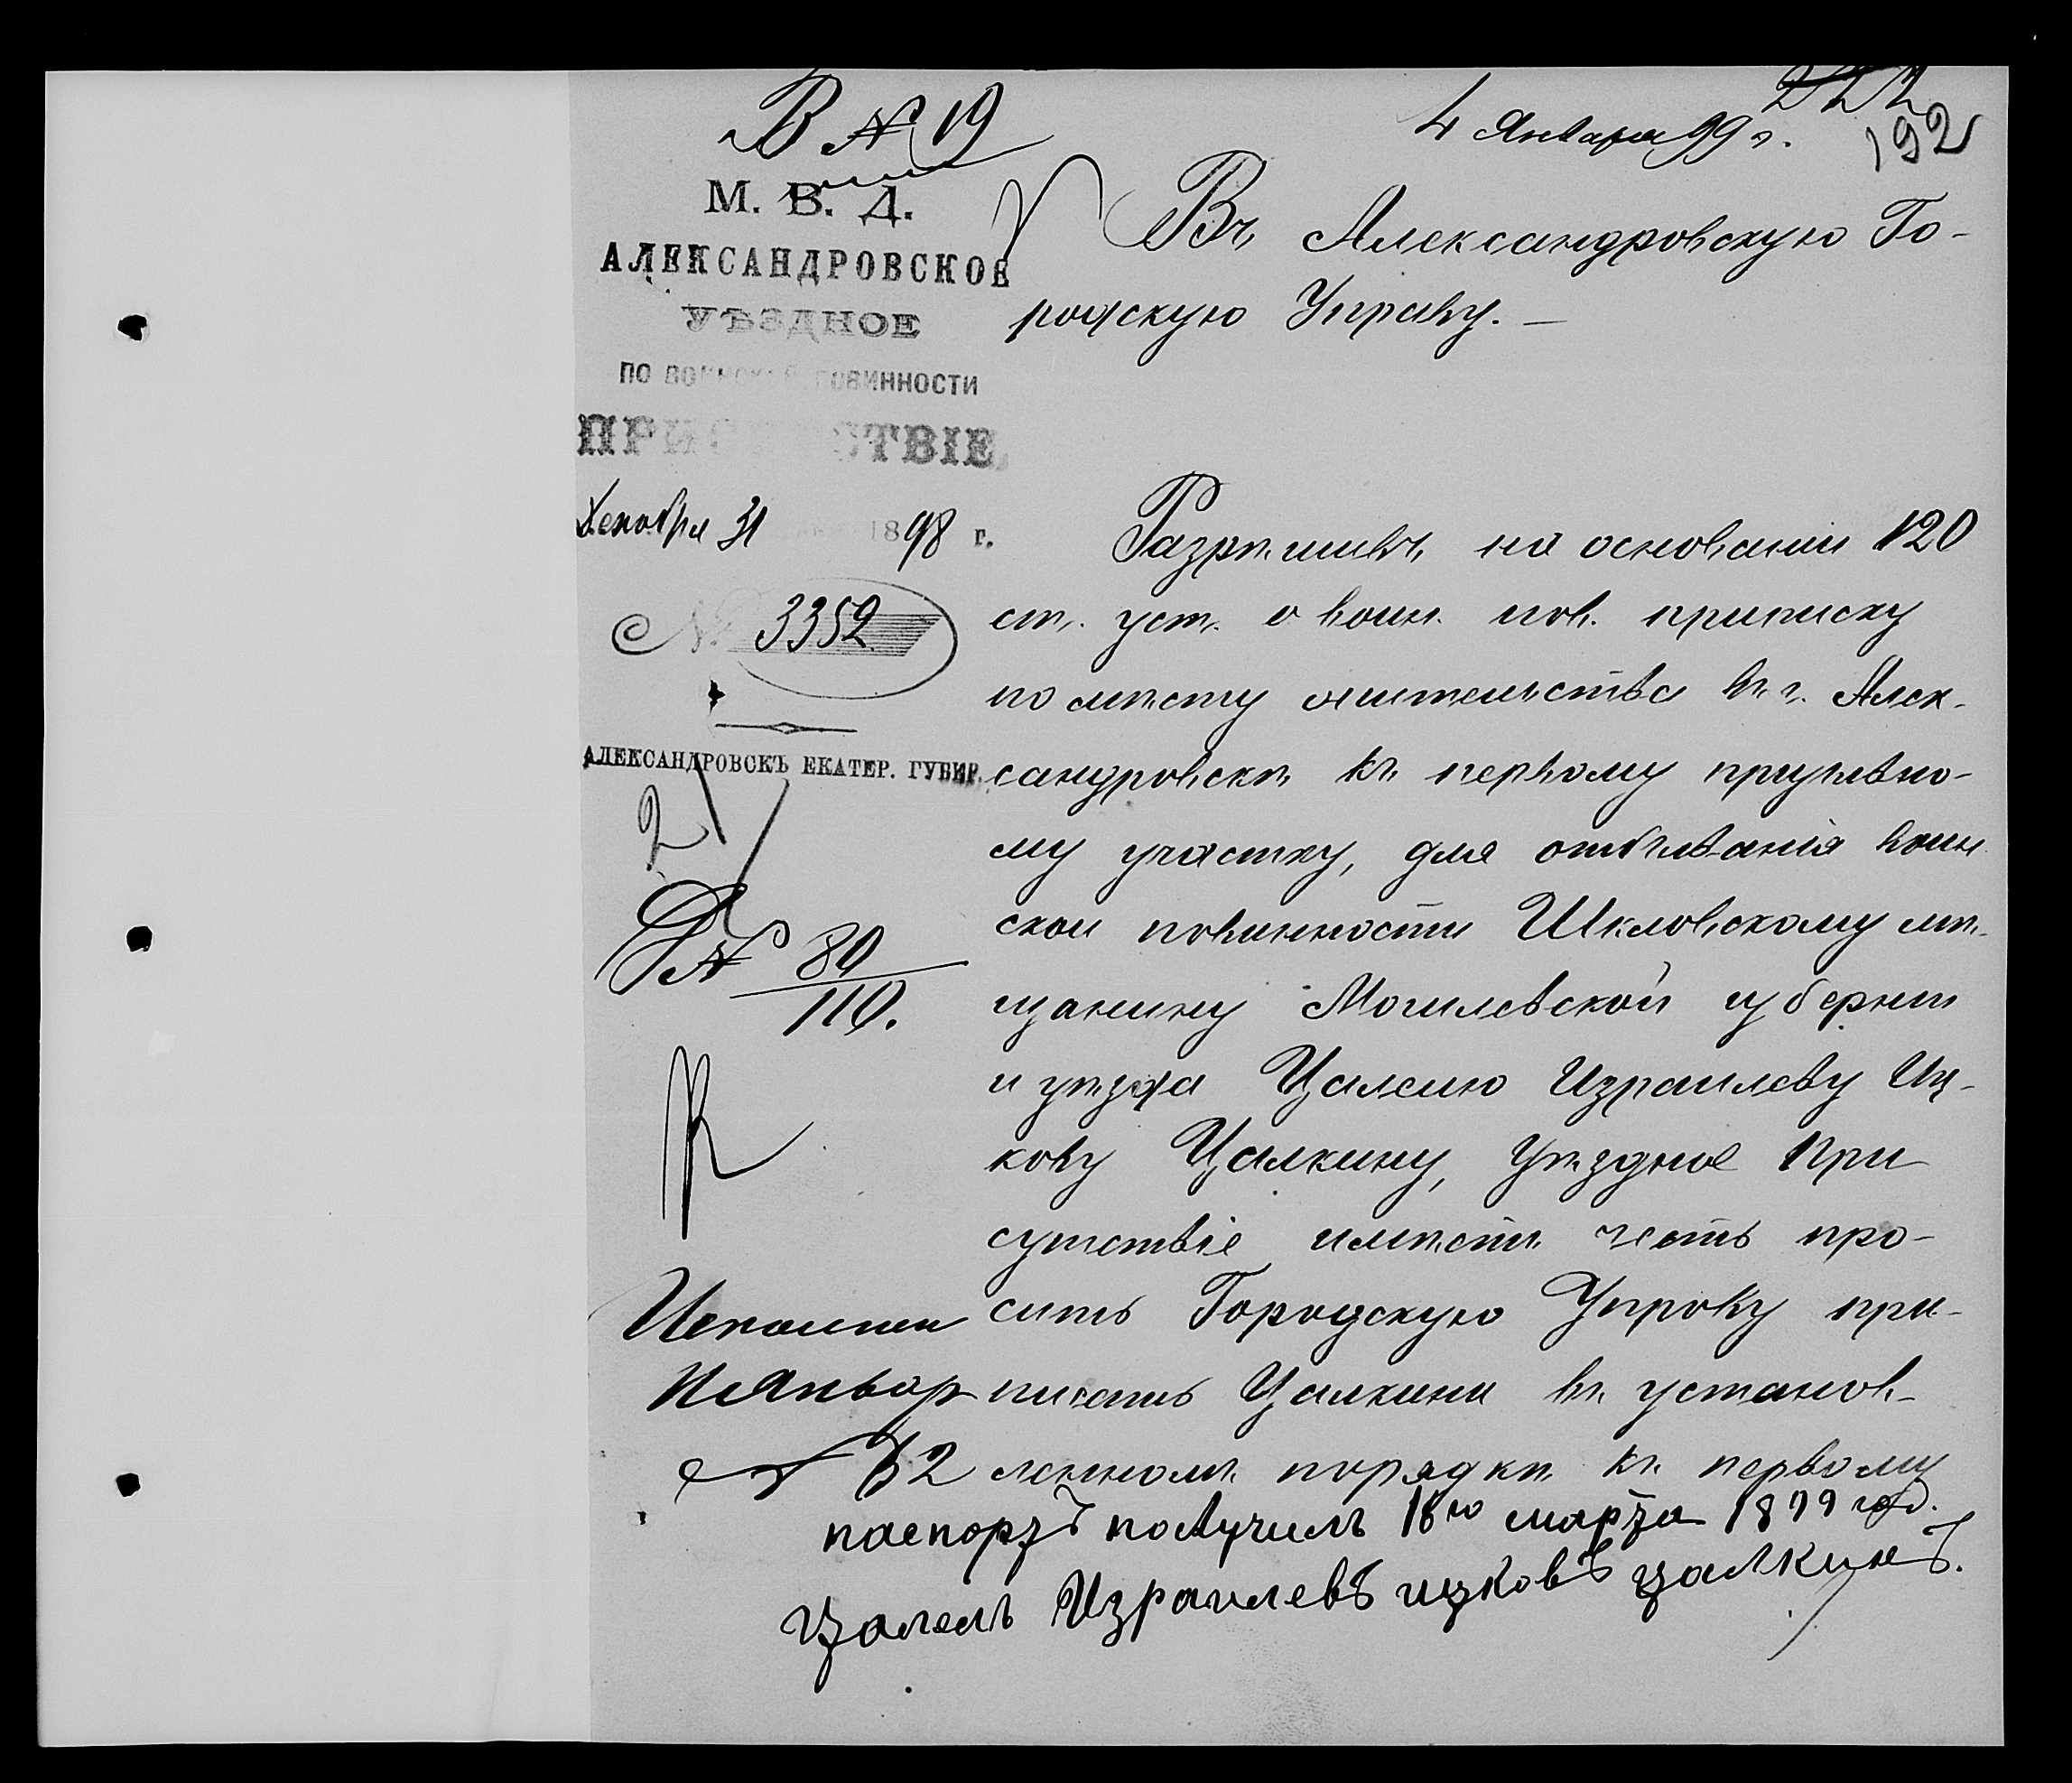 В № 19
4 Января 99 г.
192
М. В. Д.
АЛЕКСАНДРОВСКОЕ
УѢЗДНОЕ
ПО ВОИНСКОЙ ПОВИННОСТИ
ПРИСУТСТВІЕ
Декабря 31 1898 г.
№ 3352
АЛЕКСАНДРОВСКЪ ЕКАТЕР. ГУБЕР.
2
№ 80
110.
Въ Александровскую Го-
родскую Управу. —
Разрѣшивъ на основаніи 120
ст. уст. о воин. пов. приписку
по мѣсту жительства въ г. Алек-
сандровскѣ къ первому призывно-
му участку, для отбыванія воин
ской повинности Шкловскому мѣ-
щанину Могилевской губерніи
и уѣзда Цалелю Израилеву Иц-
кову Цалкину, Уѣздное При
сутствіе имѣетъ честь про-
сить Городскую Управу при-
писать Цалкина въ установ-
ленномъ порядкѣ къ первому
№ 32
паспортъ получилъ 18го марта 1899 год.
Цалель Израилевъ ицковъ цалкинъ.